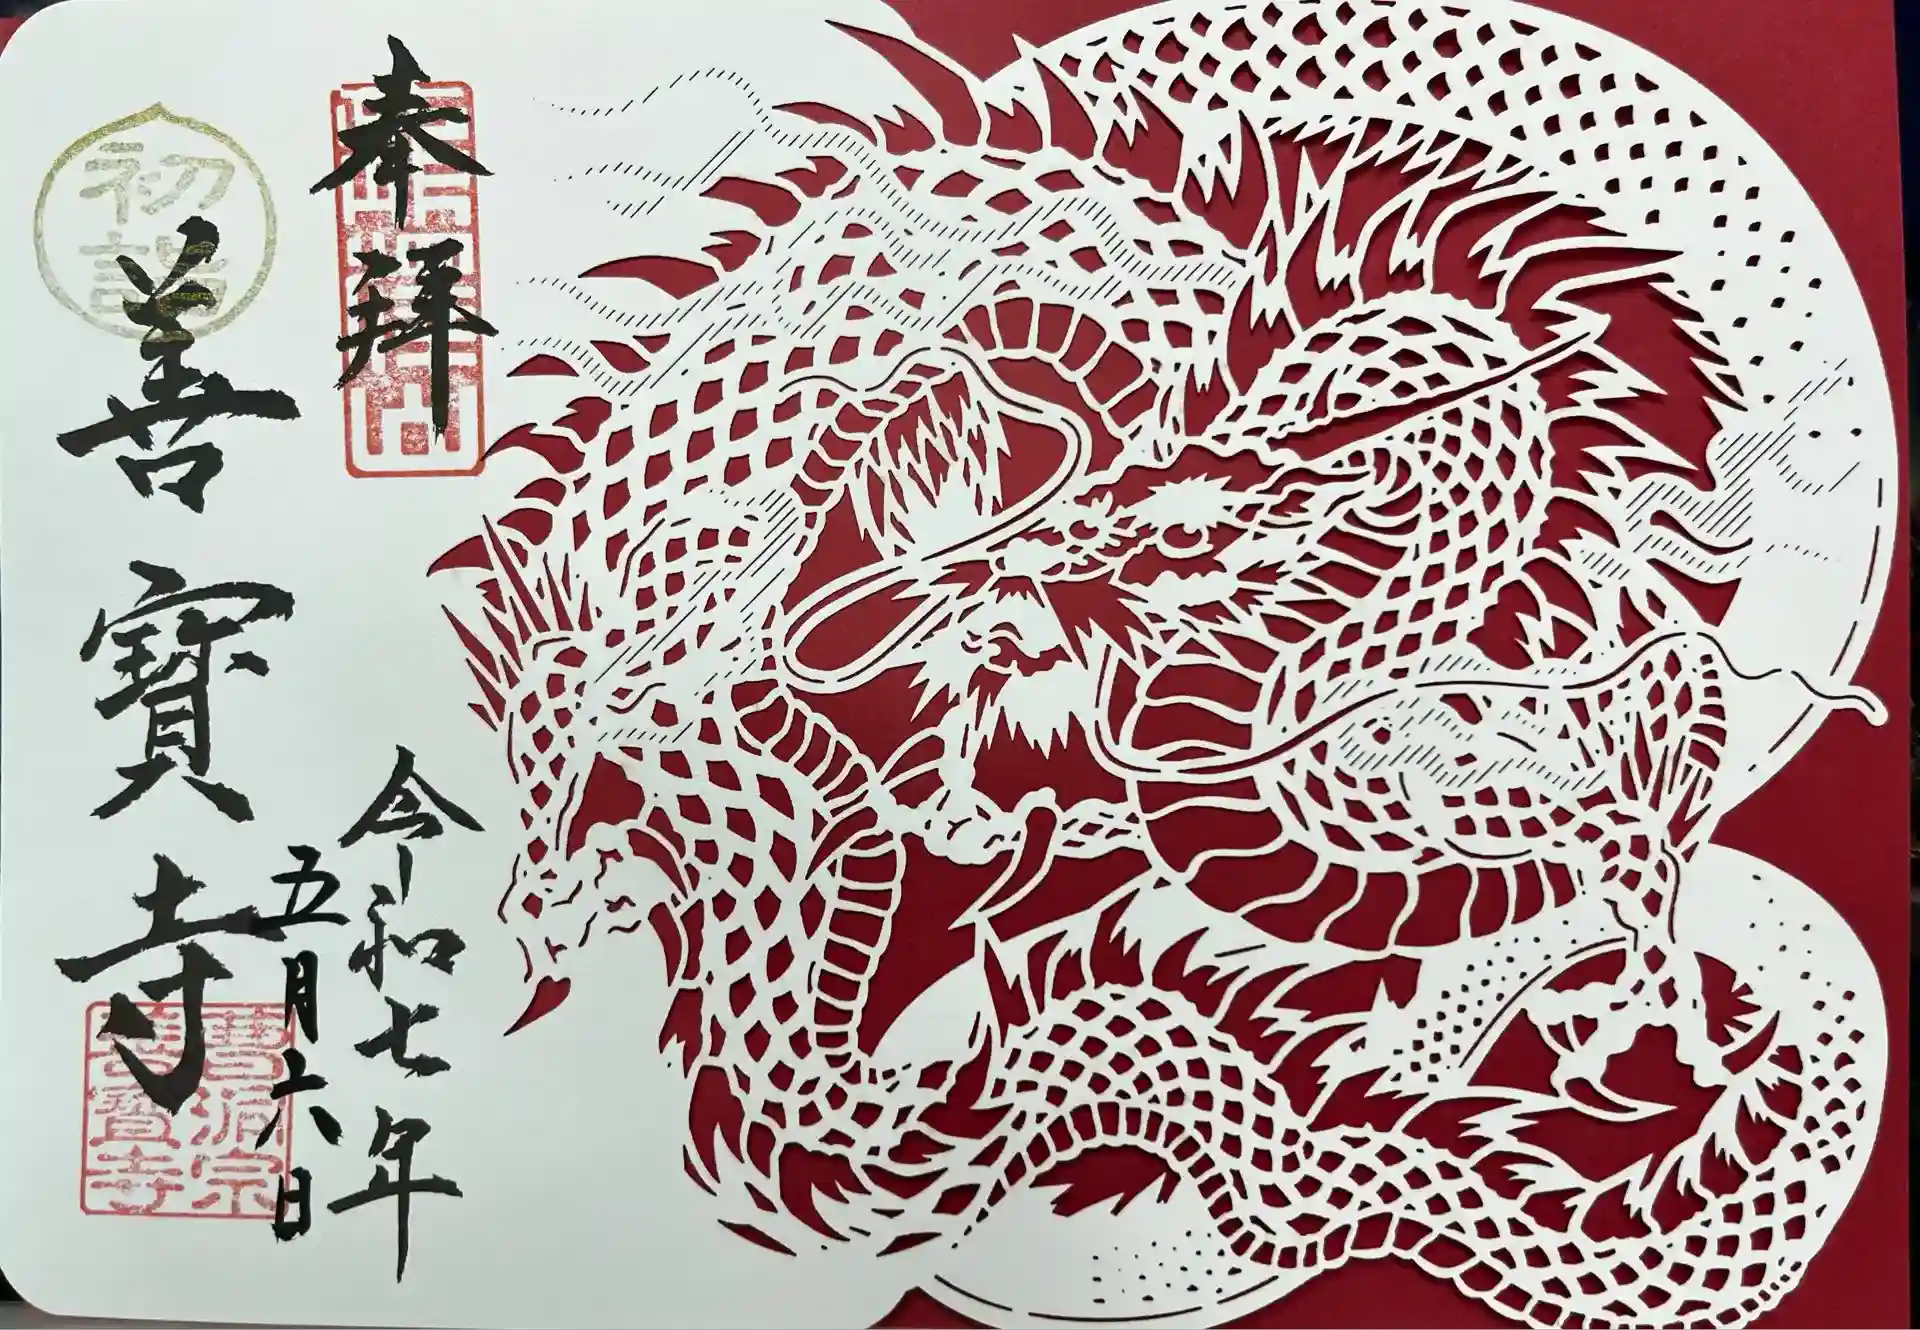 奉拝
令和七年
五月六日
初詣
善寳寺
曹洞宗
善寳寺